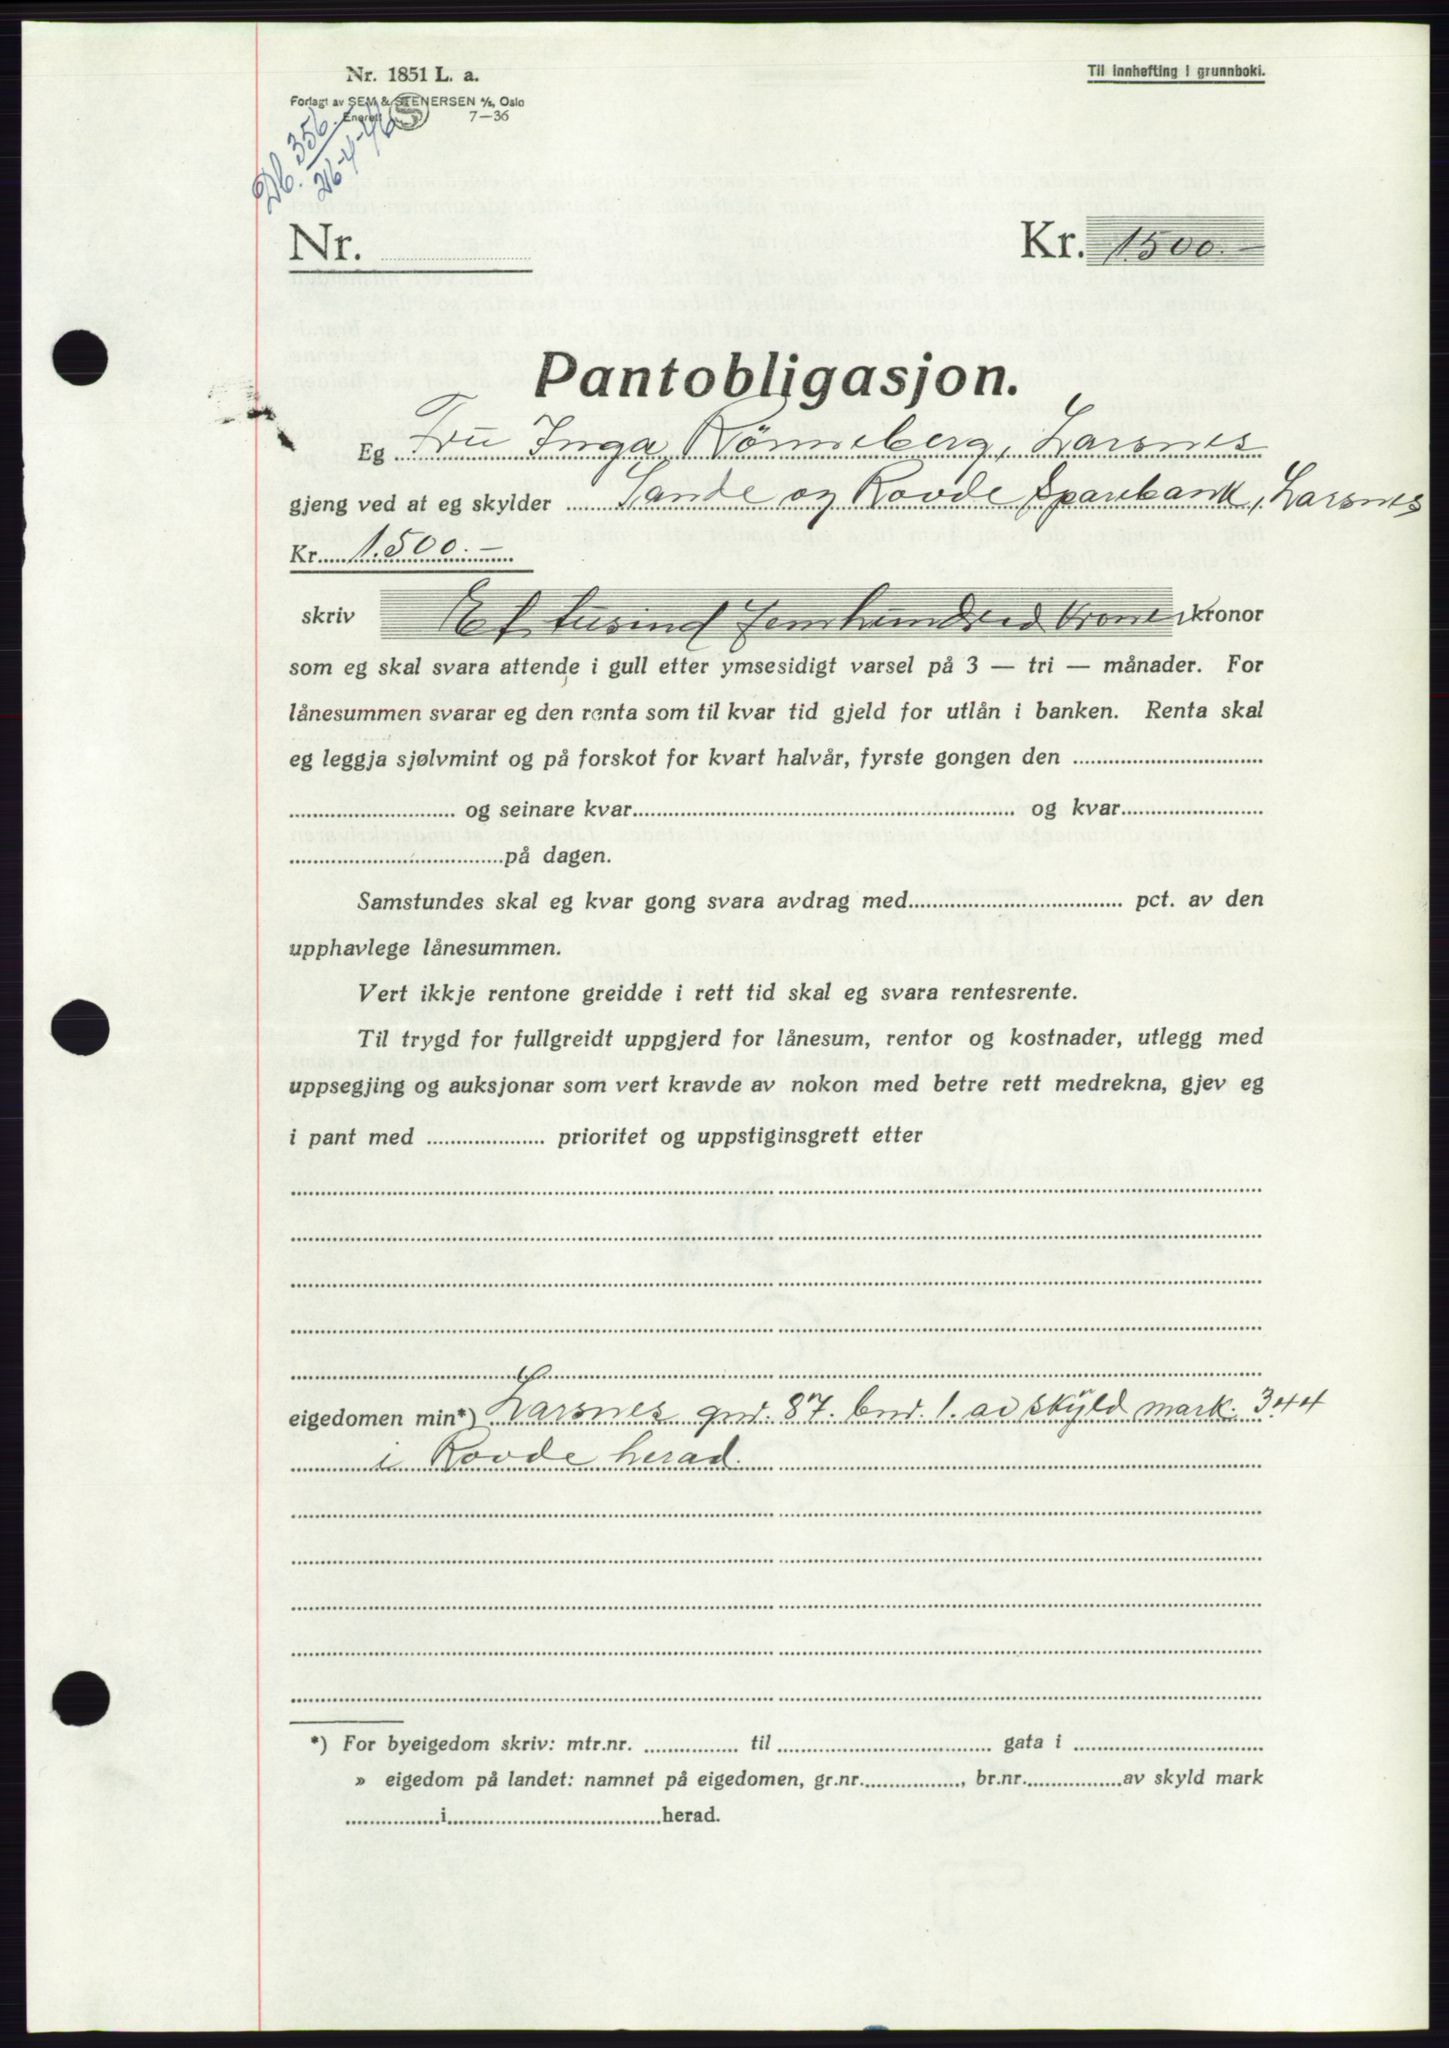 Nr. 1851 L. a.
Forlagt av SEM & STENERSEN A/S, Oslo
Enerett S 7—36
Til innhefting i grunnboki.
Db. 356
26-4-46
Nr.
Kr. 1500.—
Pantobligasjon.
Eg Fru Inga Rönneberg, Larsnes
gjeng ved at eg skylder Sande og Rovde Sparebank, Larsnes
Kr. 1.500.—
skriv Et tusind femhundred kroner kronor
som eg skal svara attende i gull etter ymsesidigt varsel på 3 — tri — månader. For
lånesummen svarar eg den renta som til kvar tid gjeld for utlån i banken. Renta skal
eg leggja sjølvmint og på forskot for kvart halvår, fyrste gongen den
og seinare kvar og kvar
på dagen.
Samstundes skal eg kvar gong svara avdrag med pct. av den
upphavlege lånesummen.
Vert ikkje rentone greidde i rett tid skal eg svara rentesrente.
Til trygd for fullgreidt uppgjerd for lånesum, rentor og kostnader, utlegg med
uppsegjing og auksjonar som vert kravde av nokon med betre rett medrekna, gjev eg
i pant med prioritet og uppstiginsgrett etter
eigedomen min*) Larsnes gnr. 87. bnr. 1. av skyld mark. 3.44
i Rovde herad.
*) For byeigedom skriv: mtr.nr. til gata i
» eigedom på landet: namnet på eigedomen, gr.nr. , br.nr. av skyld mark
i herad.